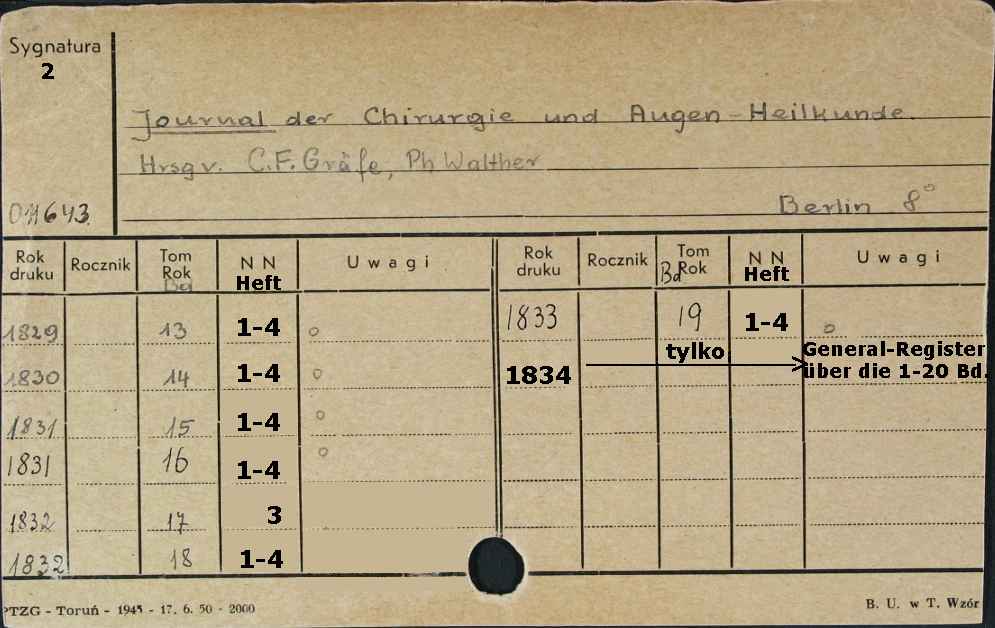 Sygnatura
2
Journal der Chirurgie und Augen-Heilkunde.
Hrsg v. C.F. Gräfe, Ph Walther
011643.
Berlin 8°
Rok druku Rocznik Tom Rok Bd N N Heft Uwagi Rok druku Rocznik Tom Bd Rok N N Heft Uwagi
1829 13 1-4 o 1833 19 1-4 o
1830 14 1-4 o 1834 tylko General-Register über die 1-20 Bd.
1831 15 1-4 o
1831 16 1-4 o
1832 17 3
1832 18 1-4
PTZG - Toruń - 1945 - 17. 6. 50 - 2000 B. U. w T. Wzór